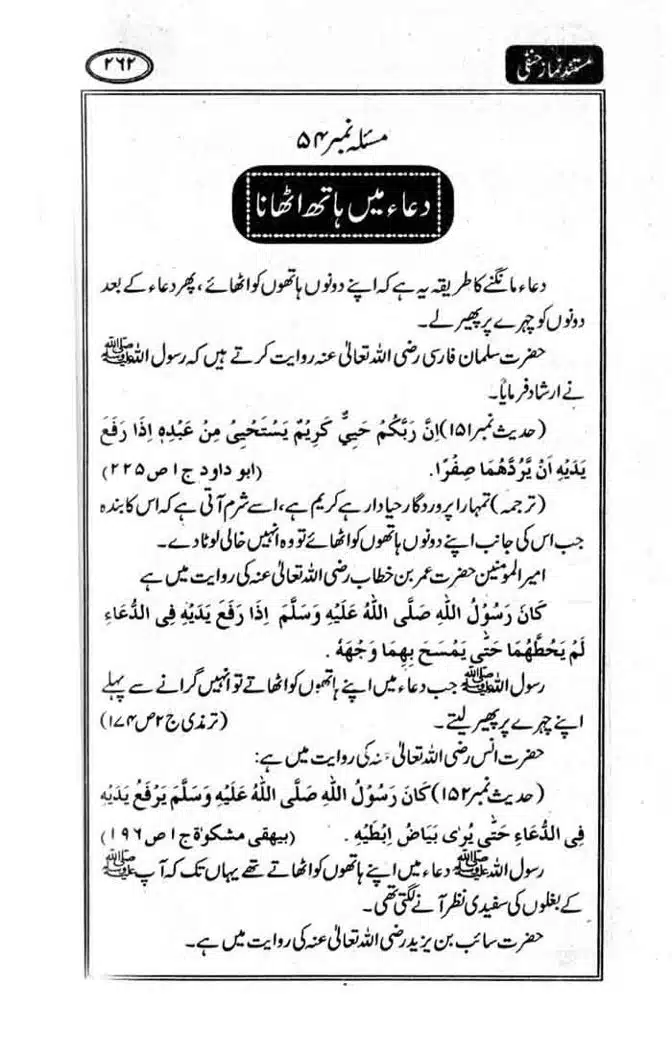 مستند نماز حنفی
۲۶۲
مسئلہ نمبر ۵۴
دعاء میں ہاتھ اٹھانا
دعاء مانگنے کا طریقہ یہ ہے کہ اپنے دونوں ہاتھوں کو اٹھائے، پھر دعاء کے بعد
دونوں کو چہرے پر پھیر لے۔
حضرت سلمان فارسی رضی اللہ تعالیٰ عنہ روایت کرتے ہیں کہ رسول اللہ ﷺ
نے ارشاد فرمایا۔
(حدیث نمبر ۱۵۱) اِنَّ رَبَّكُمْ حَيِيٌّ كَرِيْمٌ يَسْتَحْيِيْ مِنْ عَبْدِهٖ اِذَا رَفَعَ
يَدَيْهِ اَنْ يَّرُدَّهُمَا صِفْرًا. (ابو داود ج ۱ ص ۲۲۵)
(ترجمہ) تمہارا پروردگار حیا دار ہے کریم ہے، اسے شرم آتی ہے کہ اس کا بندہ
جب اس کی جانب اپنے دونوں ہاتھوں کو اٹھائے تو وہ انہیں خالی لوٹا دے۔
امیر المومنین حضرت عمر بن خطاب رضی اللہ تعالیٰ عنہ کی روایت میں ہے
كَانَ رَسُوْلُ اللّٰهِ صَلَّى اللّٰهُ عَلَيْهِ وَسَلَّمَ اِذَا رَفَعَ يَدَيْهِ فِى الدُّعَاءِ
لَمْ يَحُطَّهُمَا حَتّٰى يَمْسَحَ بِهِمَا وَجْهَهٗ .
رسول اللہ ﷺ جب دعاء میں اپنے ہاتھوں کو اٹھاتے تو انہیں گرانے سے پہلے
اپنے چہرے پر پھیر لیتے۔ (ترمذی ج ۲ ص ۱۷۴)
حضرت انس رضی اللہ تعالیٰ عنہ کی روایت میں ہے:
(حدیث نمبر ۱۵۲) كَانَ رَسُوْلُ اللّٰهِ صَلَّى اللّٰهُ عَلَيْهِ وَسَلَّمَ يَرْفَعُ يَدَيْهِ
فِى الدُّعَاءِ حَتّٰى يُرٰى بَيَاضُ اِبْطَيْهِ . (بیهقی مشکوٰة ج ۱ ص ۱۹۶)
رسول اللہ ﷺ دعاء میں اپنے ہاتھوں کو اٹھاتے تھے یہاں تک کہ آپ ﷺ
کے بغلوں کی سفیدی نظر آنے لگتی تھی۔
حضرت سائب بن یزید رضی اللہ تعالیٰ عنہ کی روایت میں ہے۔